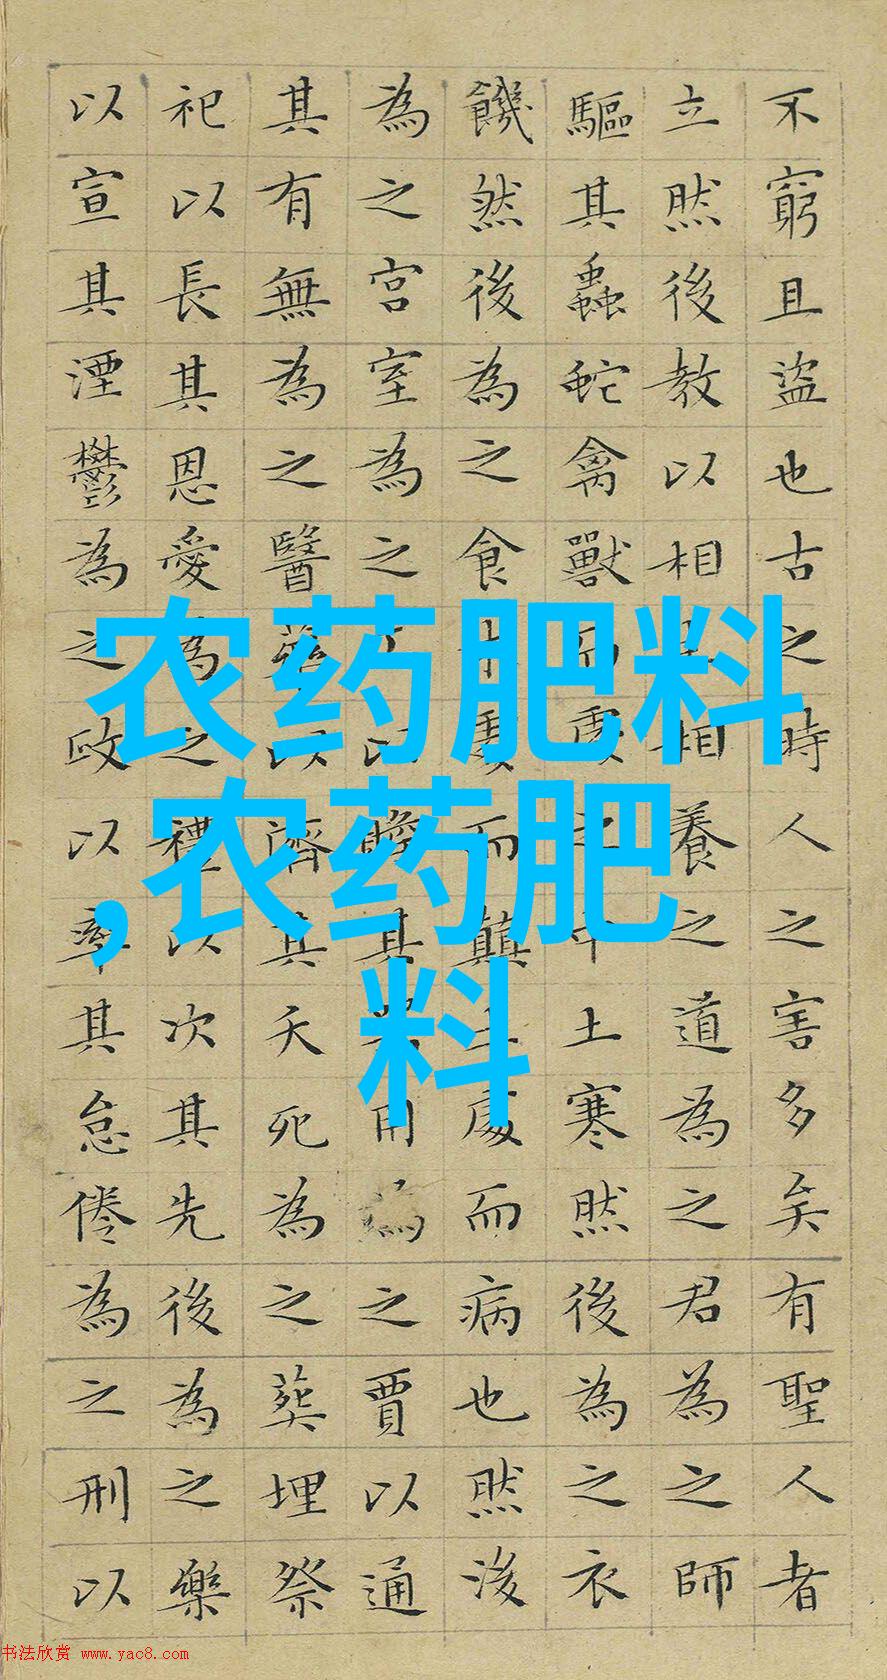 不窮且盜也古之時人之害多矣有聖人者
立然後教以相相養之道為之君為之師
驅其蟲蛇禽獸而處之中土寒然後為之衣
饑然後為之食處而顛處而病也然後
為之宮室為之以贍其用為之賈以通
其有無為之醫藥以濟其夭死為之葬埋祭
祀以長其恩愛為之禮以次其先後為之樂
以宣其湮鬱為之政以率其怠倦為之刑以
农药肥料
,农药肥
料
书法欣赏 www.yac8.com